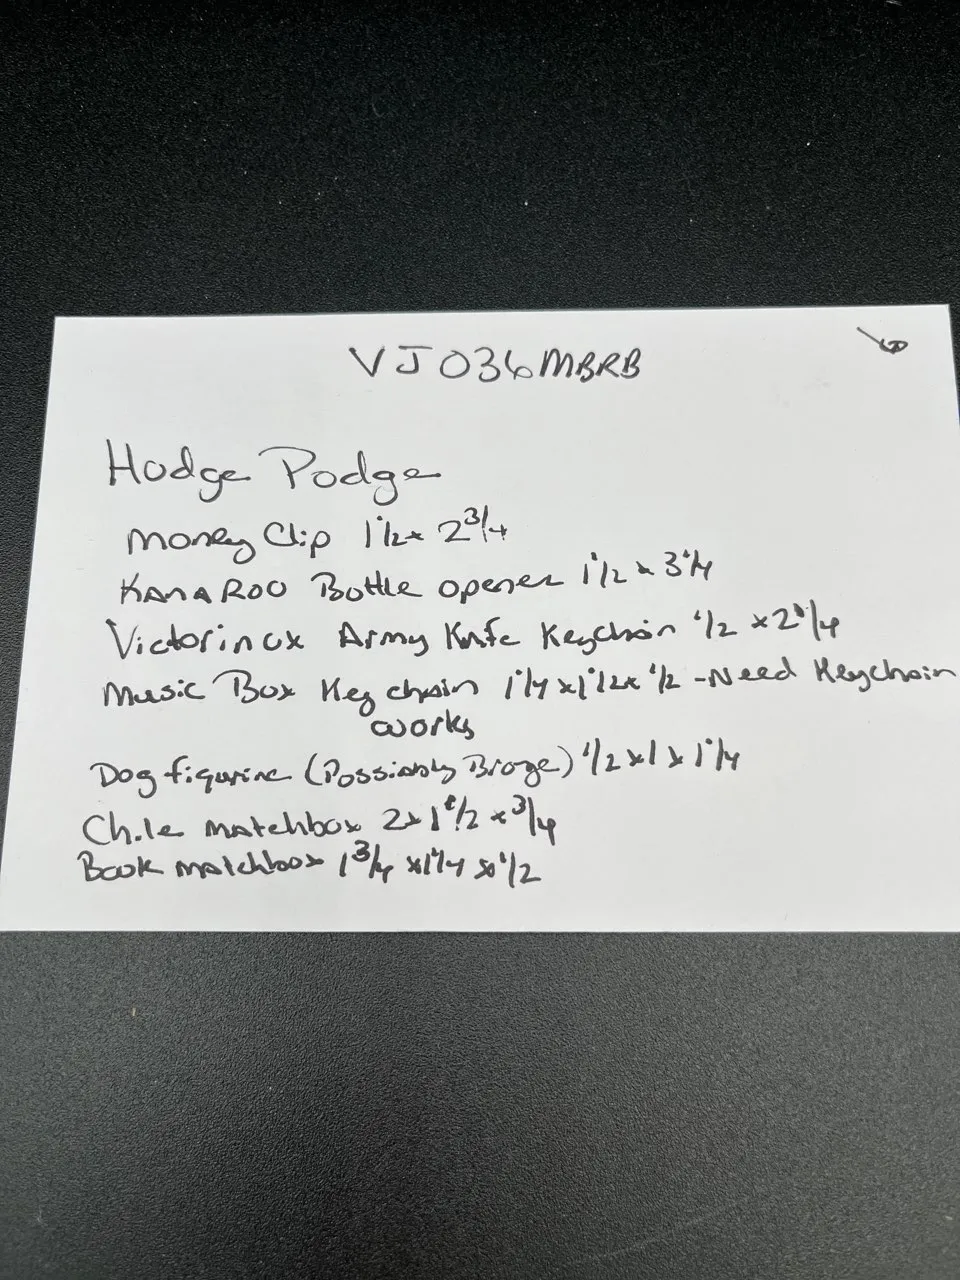 VJ036MBRB
Hodge Podge
Money Clip 1 1/2 x 2 3/4
KanaRoo Bottle opener 1 1/2 x 3 1/4
Victorinox Army Knife Keychain 1/2 x 2 1/4
Music Box Keychain 1 1/4 x 1 1/2 x 1/2 - Need Keychain
works
Dog figurine (Possiably Broze) 1/2 x 1 x 1 1/4
Chile matchbox 2 x 1 1/2 x 3/4
Book matchbox 1 3/4 x 1 1/4 x 1/2